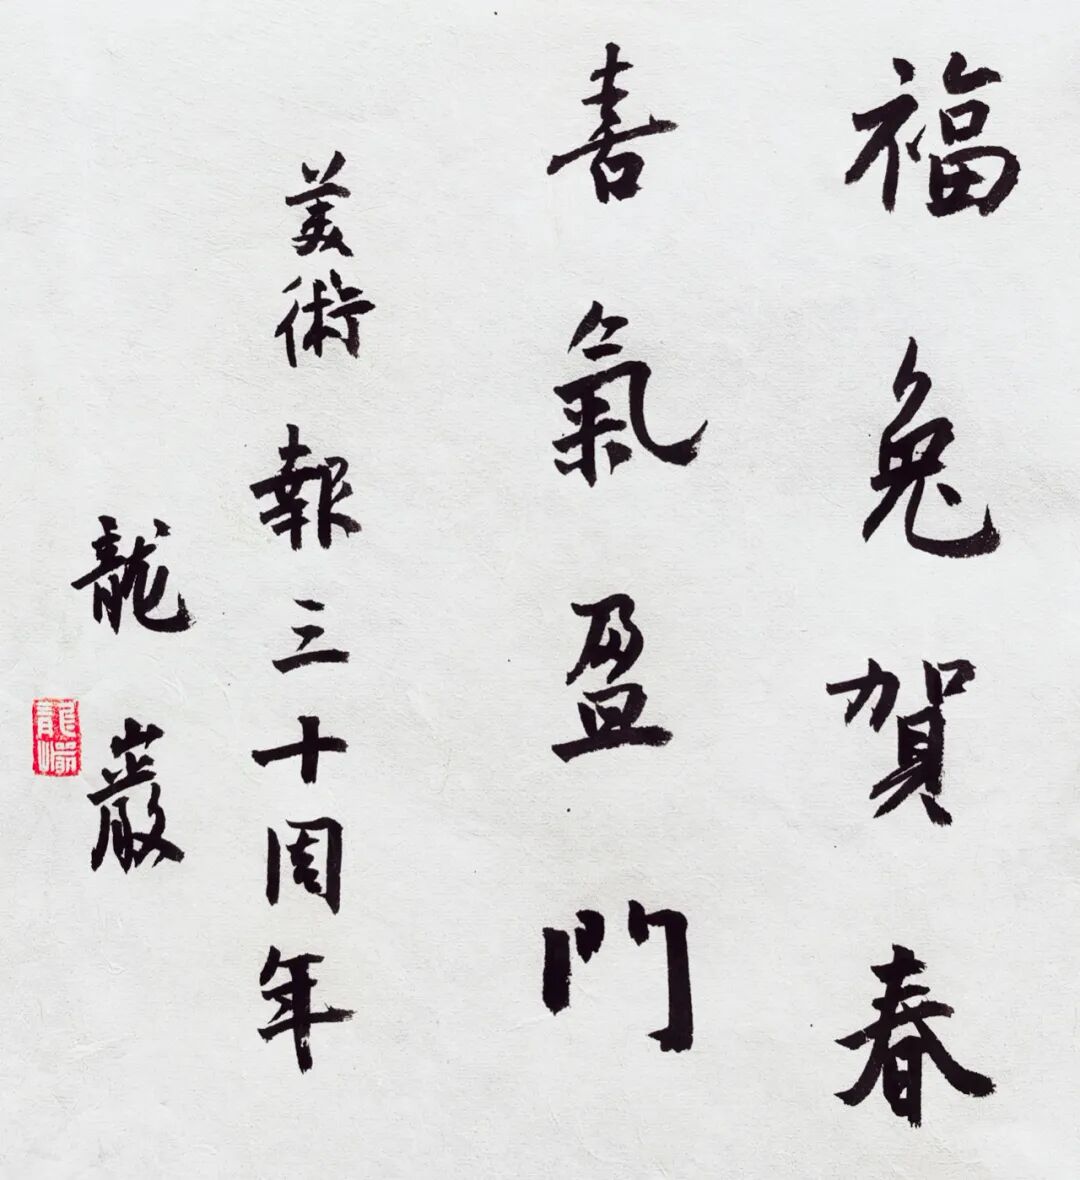 福兔賀春
喜氣盈門
美術報三十周年
龍巖
龍巖